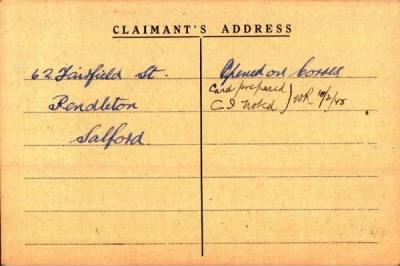 CLAIMANT'S ADDRESS
62 Fairfield St.
Pendleton
Salford.
Opened on corres
Card prepared
C I noted } WR 10/2/45